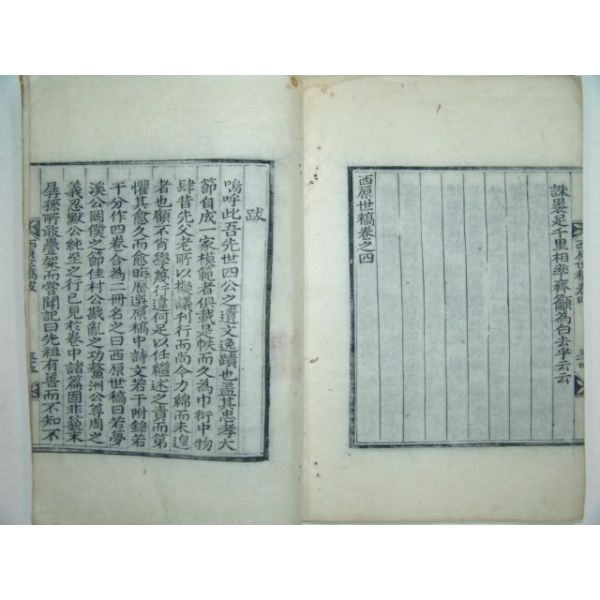 誅畏足千里相率齊籲為白去乎云云
西原世稿卷之四
跋
嗚呼此吾先世四公之遺文逸蹟也盖其忠孝大
節自成一家模範者俱載是帙而久為巾衍中物
肆昔先父老所以擬議刊行而尚今力綿而未遑
者也顧不肖學蔑行違何足以任繼述之責而第
懼其愈久而愈晦歷選原稿中詩文若干附錄若
干分作四卷合為二冊名之曰西原世稿曰若夢
溪公罔僕之節佳村公戡亂之功鰲洲公尊周之
義忍默公純至之行已見於卷中諸篇固非藐末
孱孫所敢疊架而嘗聞記曰先祖有善而不知不